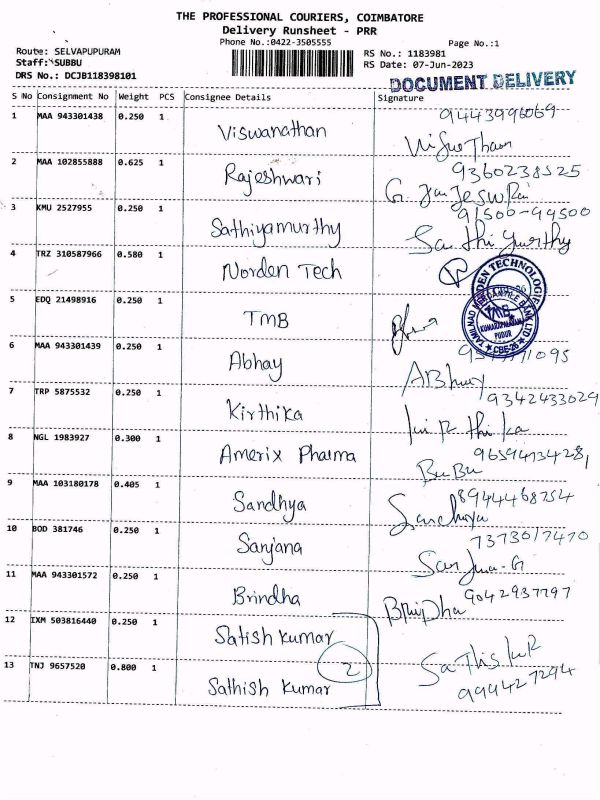 THE PROFESSIONAL COURIERS, COIMBATORE
Delivery Runsheet - PRR
Phone No.:0422-3505555
Page No.:1
Route: SELVAPUPURAM
Staff: SUBBU
DRS No.: DCJB118398101
RS No.: 1183981
RS Date: 07-Jun-2023
DOCUMENT DELIVERY
S No Consignment No Weight PCS Consignee Details Signature
1 MAA 943301438 0.250 1 Viswanathan 9443996069
2 MAA 102855888 0.625 1 Rajeshwari 9360238525
3 KMU 2527955 0.250 1 Sathiyamurthy 91500-99500
4 TRZ 310587966 0.580 1 Norden Tech
5 EDQ 21498916 0.250 1 TMB
TAMILNAD MERCANTILE BANK LTD
TMB
KUMARAPALAYAM
PUDUR
CBE-26
6 MAA 943301439 0.250 1 Abhay
7 TRP 5875532 0.250 1 Kirthika 9342433029
8 NGL 1983927 0.300 1 Amerix Pharma
BuBu
9 MAA 103180178 0.405 1 Sandhya 8944468754
10 BOD 381746 0.250 1 Sanjana 7373017470
11 MAA 943301572 0.250 1 Brindha 9042937797
12 IXM 503816440 0.250 1 Satish Kumar
2
13 TNJ 9657520 0.800 1 Sathish Kumar 999427294